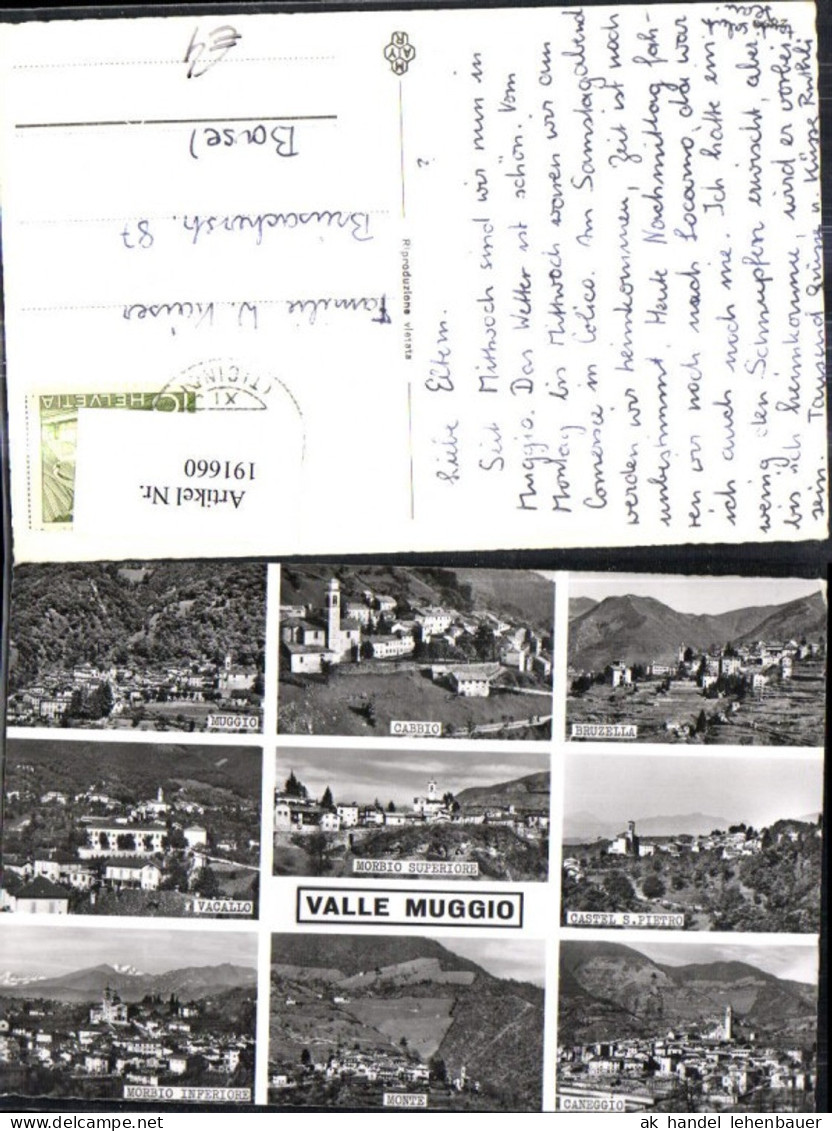 Liebe Eltern.
Seit Mittwoch sind wir nun in
Muggio. Das Wetter ist schön. Vom
Montag bis Mittwoch waren wir am
Comersee in Colico. Am Samstagabend
werden wir heimkommen, Zeit ist noch
unbestimmt. Heute Nachmittag fah-
ren wir noch nach Locarno, da war
ich auch noch nie. Ich hatte ein
wenig den Schnupfen erwischt, aber
bis ich heimkomme, wird er vorbei
sein. Tausend Grüsse u. Küsse Ruthli
MAYR
Riproduzione vietata
Familie W. Kaiser
Brüsacherstr. 87
Basel
€4
HELVETIA
(TICINO)
XI
Artikel Nr.
191660
MUGGIO
CABBIO
BRUZELLA
VACALLO
MORBIO SUPERIORE
CASTEL S.PIETRO
VALLE MUGGIO
MORBIO INFERIORE
MONTE
CANEGGIO
ak handel lehenbauer